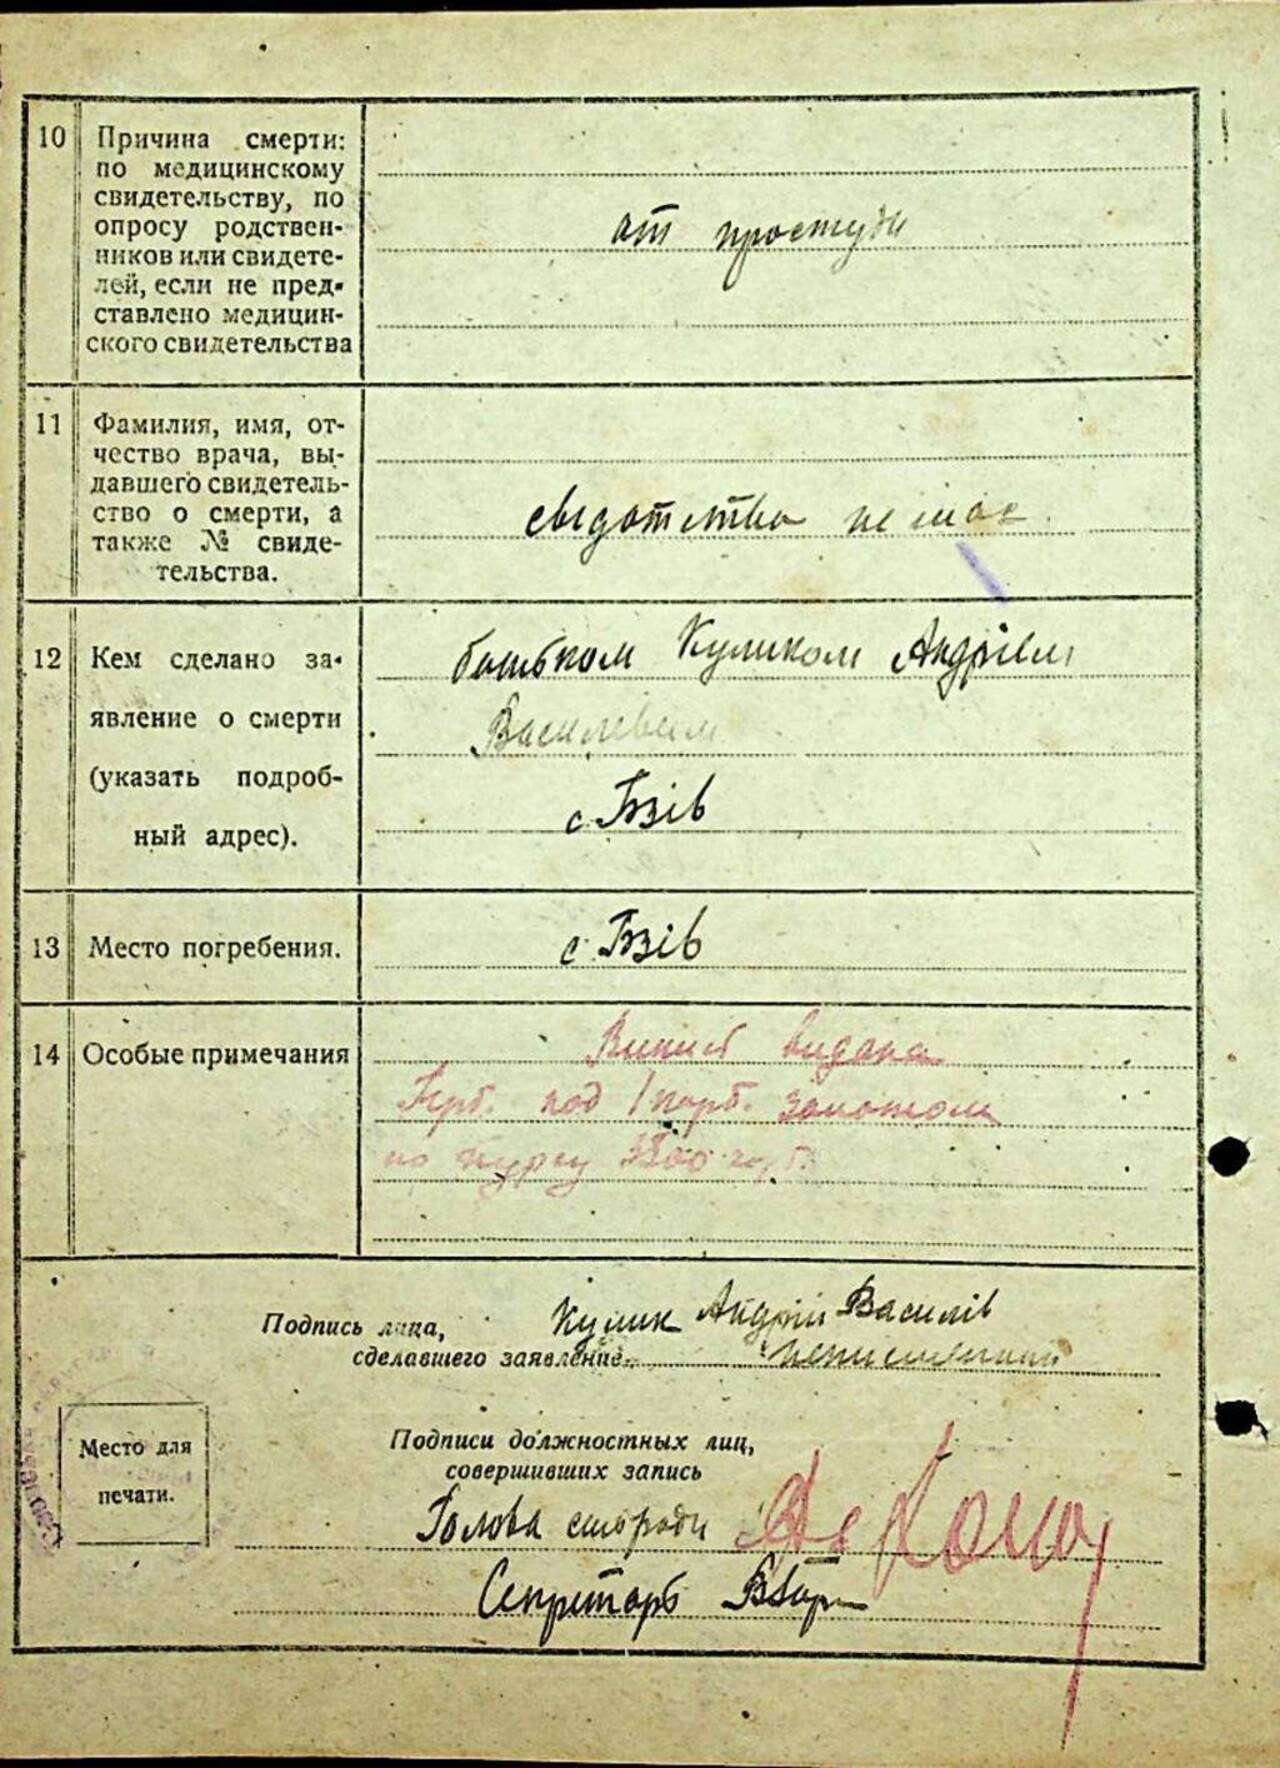 10
Причина смерти:
по медицинскому
свидетельству, по
опросу родствен-
ников или свидете-
лей, если не пред-
ставлено медицин-
ского свидетельства
от простуди
11
Фамилия, имя, от-
чество врача, вы-
давшего свидетель-
ство о смерти, а
также № свиде-
тельства.
свідотства не має
12
Кем сделано за-
явление о смерти
(указать подроб-
ный адрес).
батьком Куликом Андрієм
Василевим
с. Бзів
13
Место погребения.
с. Бзів
14
Особые примечания
Випис видана
под
по курсу
Подпись лица,
сделавшего заявление
Кулик Андрій Василів
неписьменний
Место для
печати.
Подписи должностных лиц,
совершивших запись
Голова сільради
Секретарь